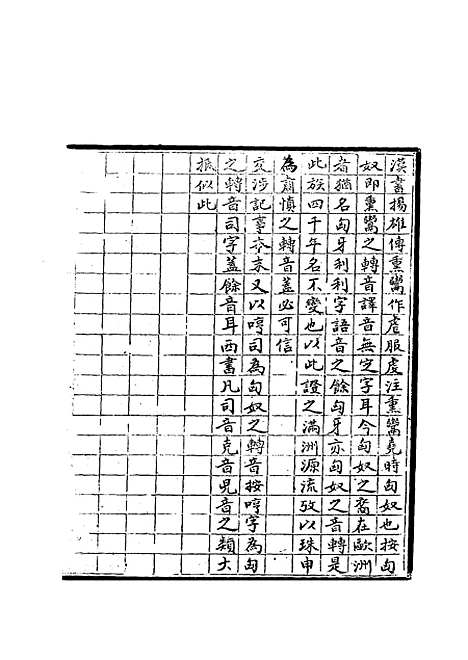 漢書揚雄傳熏鬻作虐服虔注熏鬻堯時匈奴也按匈
奴即熏鬻之轉音譯音無定字耳今匈奴之裔在歐洲
者猶名匈牙利利字語音之餘匈牙亦匈奴之音轉是
此族四千年名不變也以此證之滿洲源流攷以珠申
為肅慎之轉音蓋必可信
交涉記事本末又以哼司為匈奴之轉音按哼字為匈
之轉音司字蓋餘音耳西書凡司音克音兒音之類大
抵似此